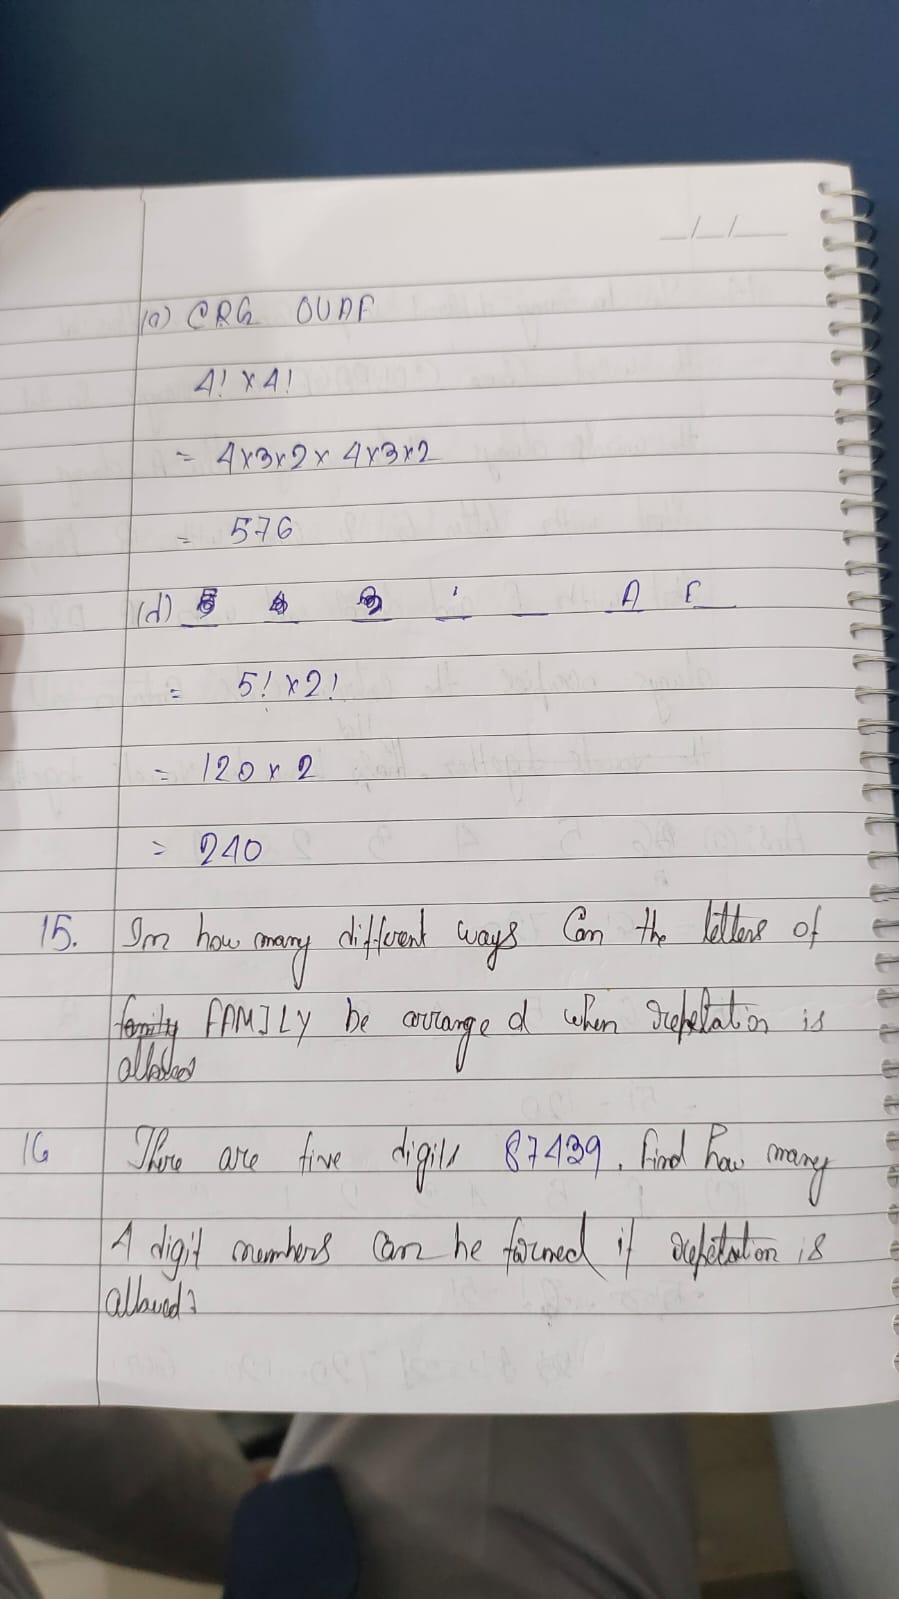 __/__/____
(a) CRG OUAE
4! x 4!
= 4x3x2x 4x3x2
= 576
(d) 5 4 3 _ _ A E
= 5! x 2!
= 120 x 2
= 240
15. In how many different ways Can the letters of
family FAMILY be arranged when repetation is
allowed
16 There are five digits 87439. find how many
4 digit numbers can be formed if repetation is
allowed?